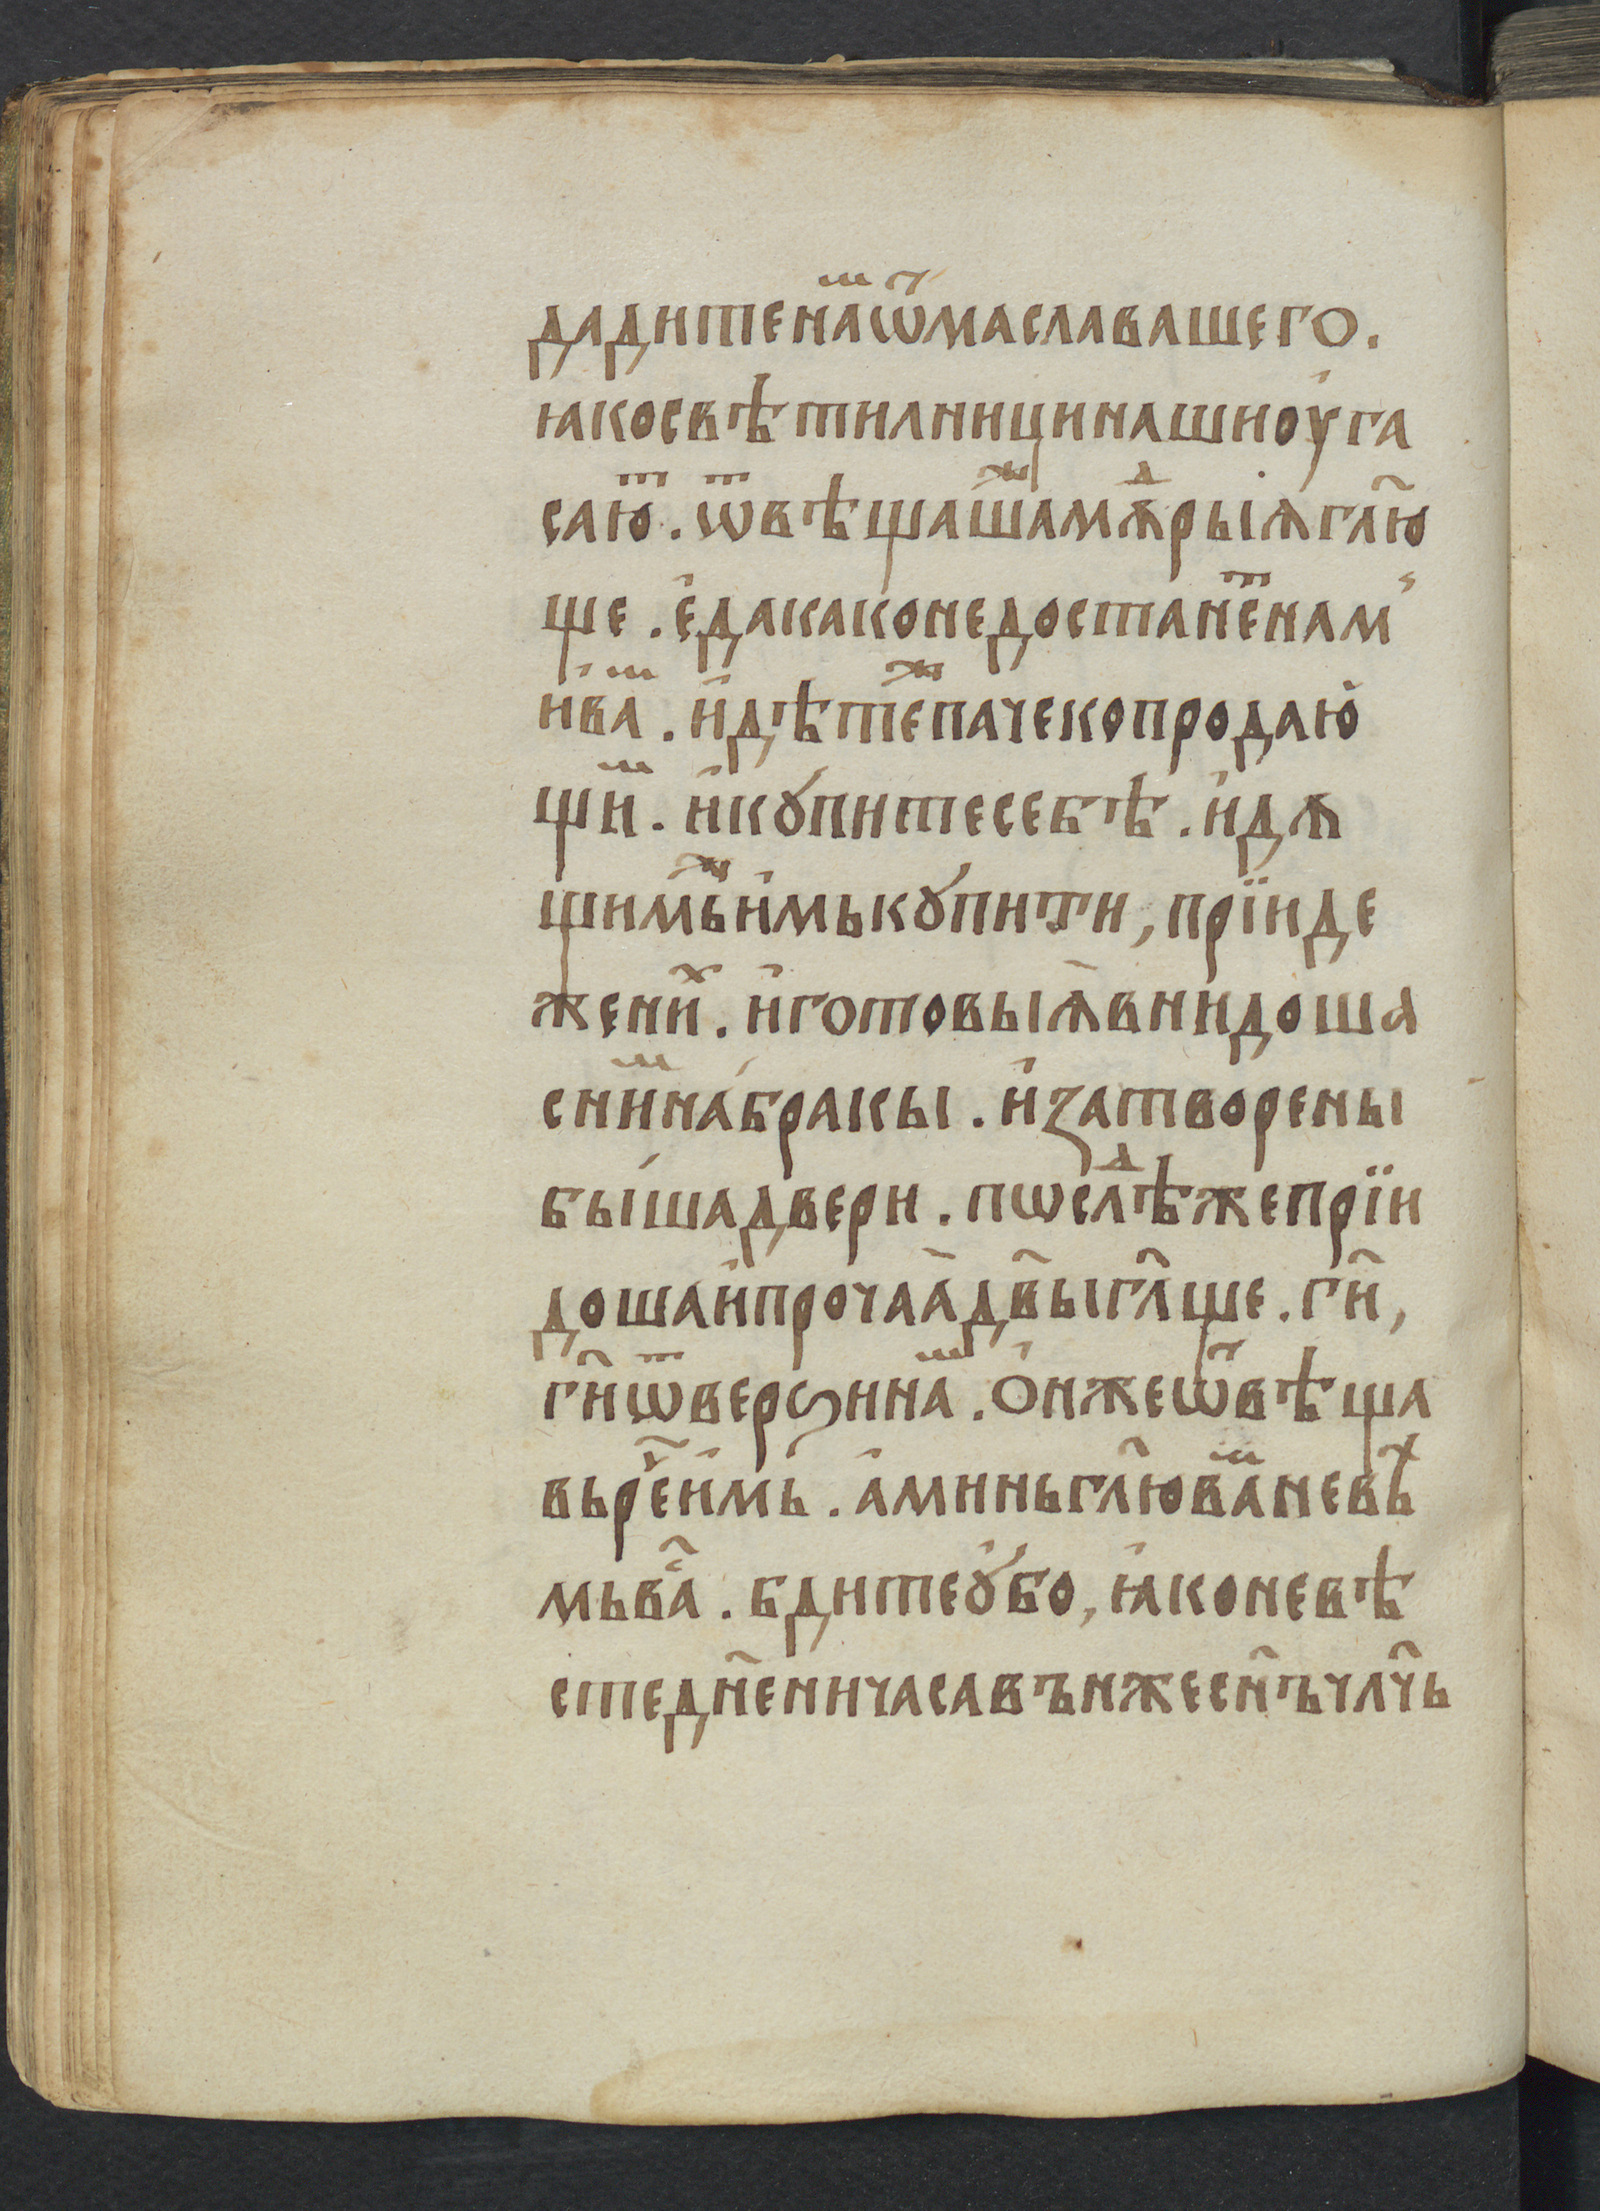 дадитенаⷨ҇ѿмаславашего.
ꙗкосвѣтилницинашиоу҆га
саюⷮ. ѿвѣщашаⷤмѫⷣрыѧгл҃ю
ще. е҆дакаконедостанеⷮнам҆
и҆ваⷨ. и҆дѣтеⷤпачекопродаю҆
щиⷨ. и҆кꙋпитесебѣ. и҆дѧ
щимьⷤи҆мькꙋпити, прїиде
жениⷯ. и҆готовыѧвнидоша
сниⷨнабракы. и҆затворены
бышадвери. пѡслѣⷣжепрїи
дошаи҆прочаадв҃ыгл҃ще. гн҃и,
гн҃иѿверꙃинаⷨ. Ѻ҆нжеѿвѣща
вьре҃и҆мь. а҆миньгл҃юваⷨневѣ
мьваⷭ҇. бдитеꙋ҆бо, ꙗ҆коневѣ
стедн҃еничасавъижесн҃ъчлч҃ь